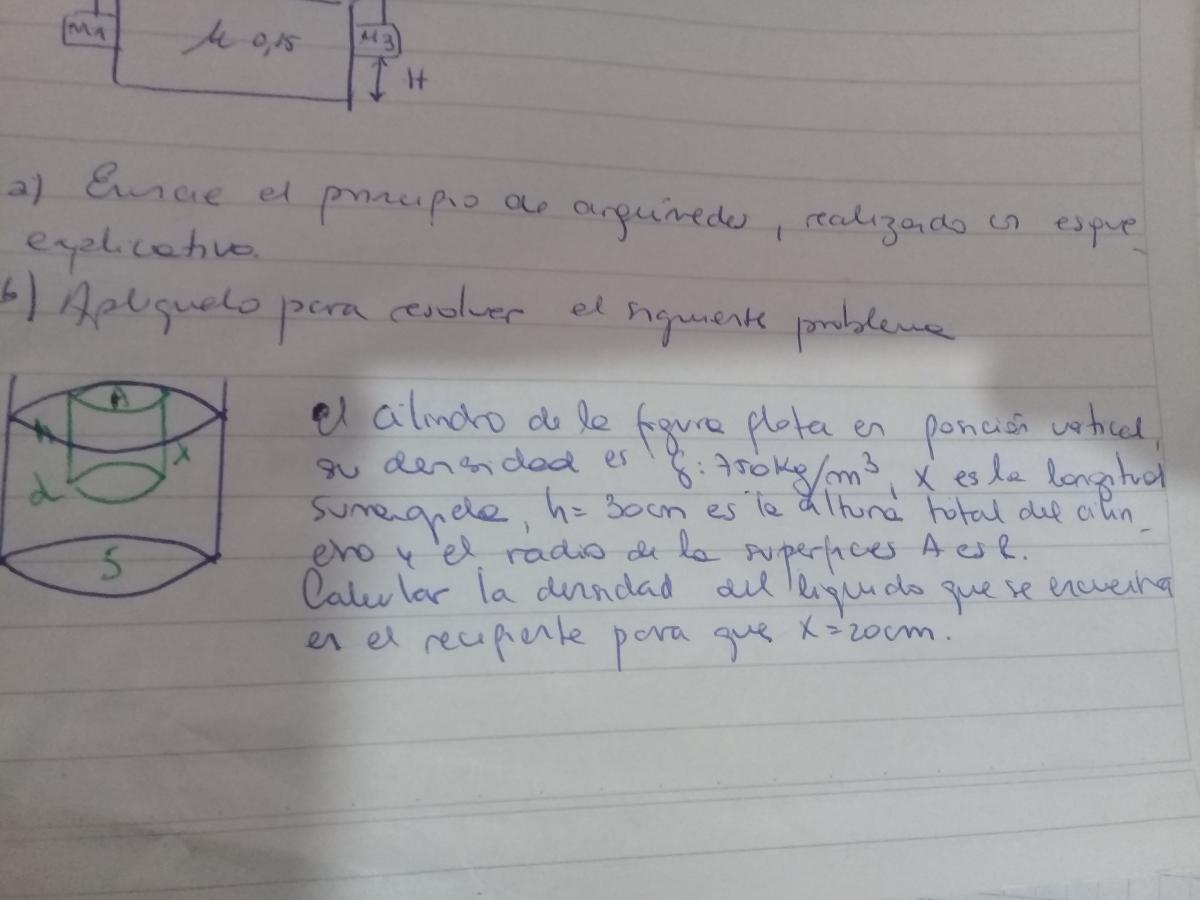 M1
μ 0,15
M3
H
a) Enuncie el principio de arquímedes, realizado un esque
explicativo.
b) Apliquelo para resolver el siguiente problema
A
h
x
d
S
El cilindro de la figura flota en posición vertical,
su densidad es δ: 750kg/m³, x es la longitud
sumergida, h= 30cm es la altura total del cilin_
dro y el radio de la superfices A es R.
Calcular la densidad del liquido que se encuentra
en el recipiente para que x=20cm.